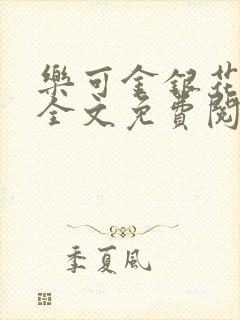 樂可金銀花
全文免費閱
季夏風